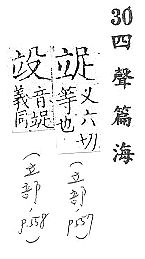 30 四聲篇海
䇍 义六切
等也
(立部, P.557)
音䇍
義同
(立部, P.558)